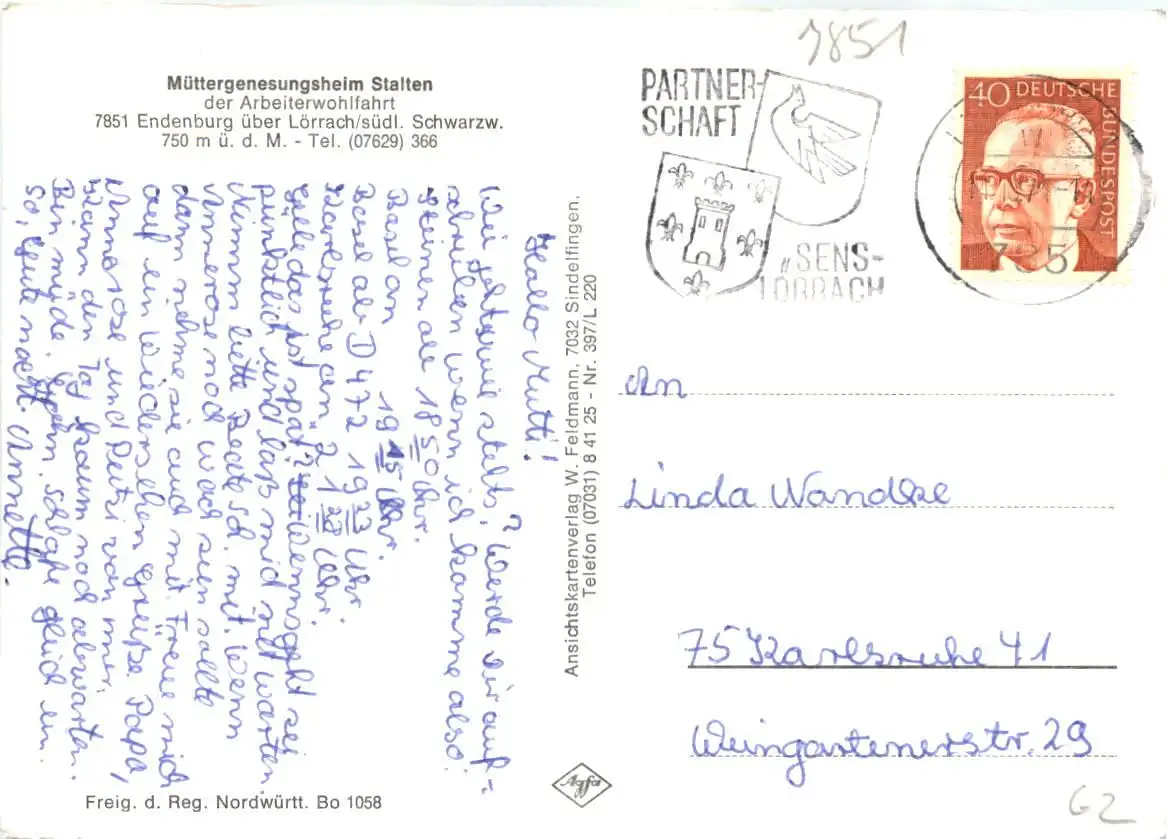 7851
Müttergenesungsheim Stalten
der Arbeiterwohlfahrt
7851 Endenburg über Lörrach/südl. Schwarzw.
750 m ü. d. M. - Tel. (07629) 366
Hallo Mutti!
Wie stehts? Werde dir auf-
schreiben wenn ich komme also:
Steinen ab 18 50 Uhr.
Basel an 19 15 Uhr.
Basel ab D 472 19 23 Uhr
Karlsruhe an 21 Uhr.
Gelle das ist spät? wenns geht sei
pünktlich und laß mich nit warten.
Nimm bitte Beate sch. mit. Wenn
Annerose noch wach sein sollte
dann nehme sie auch mit. Freue mich
auf ein Wiedersehen grüße Papa,
Annerose und Petri von mir.
Kann den Tag kaum noch abwarten.
Bin müde. schlafe gleich ein.
So, gute nacht. Annette.
Ansichtskartenverlag W. Feldmann, 7032 Sindelfingen,
Telefon (07031) 8 41 25 - Nr. 397/L 220
PARTNER-
SCHAFT
„SENS-
LÖRRACH
40 DEUTSCHE
BUNDESPOST
785
An
Linda Wandke
75 Karlsruhe 41
Weingartenerstr. 29
Freig. d. Reg. Nordwürtt. Bo 1058
Agfa
G2